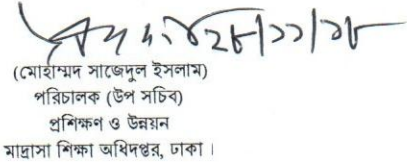 ২৮/১১/১৮
(মোহাম্মদ সাজেদুল ইসলাম)
পরিচালক (উপ সচিব)
প্রশিক্ষণ ও উন্নয়ন
মাদ্রাসা শিক্ষা অধিদপ্তর, ঢাকা।